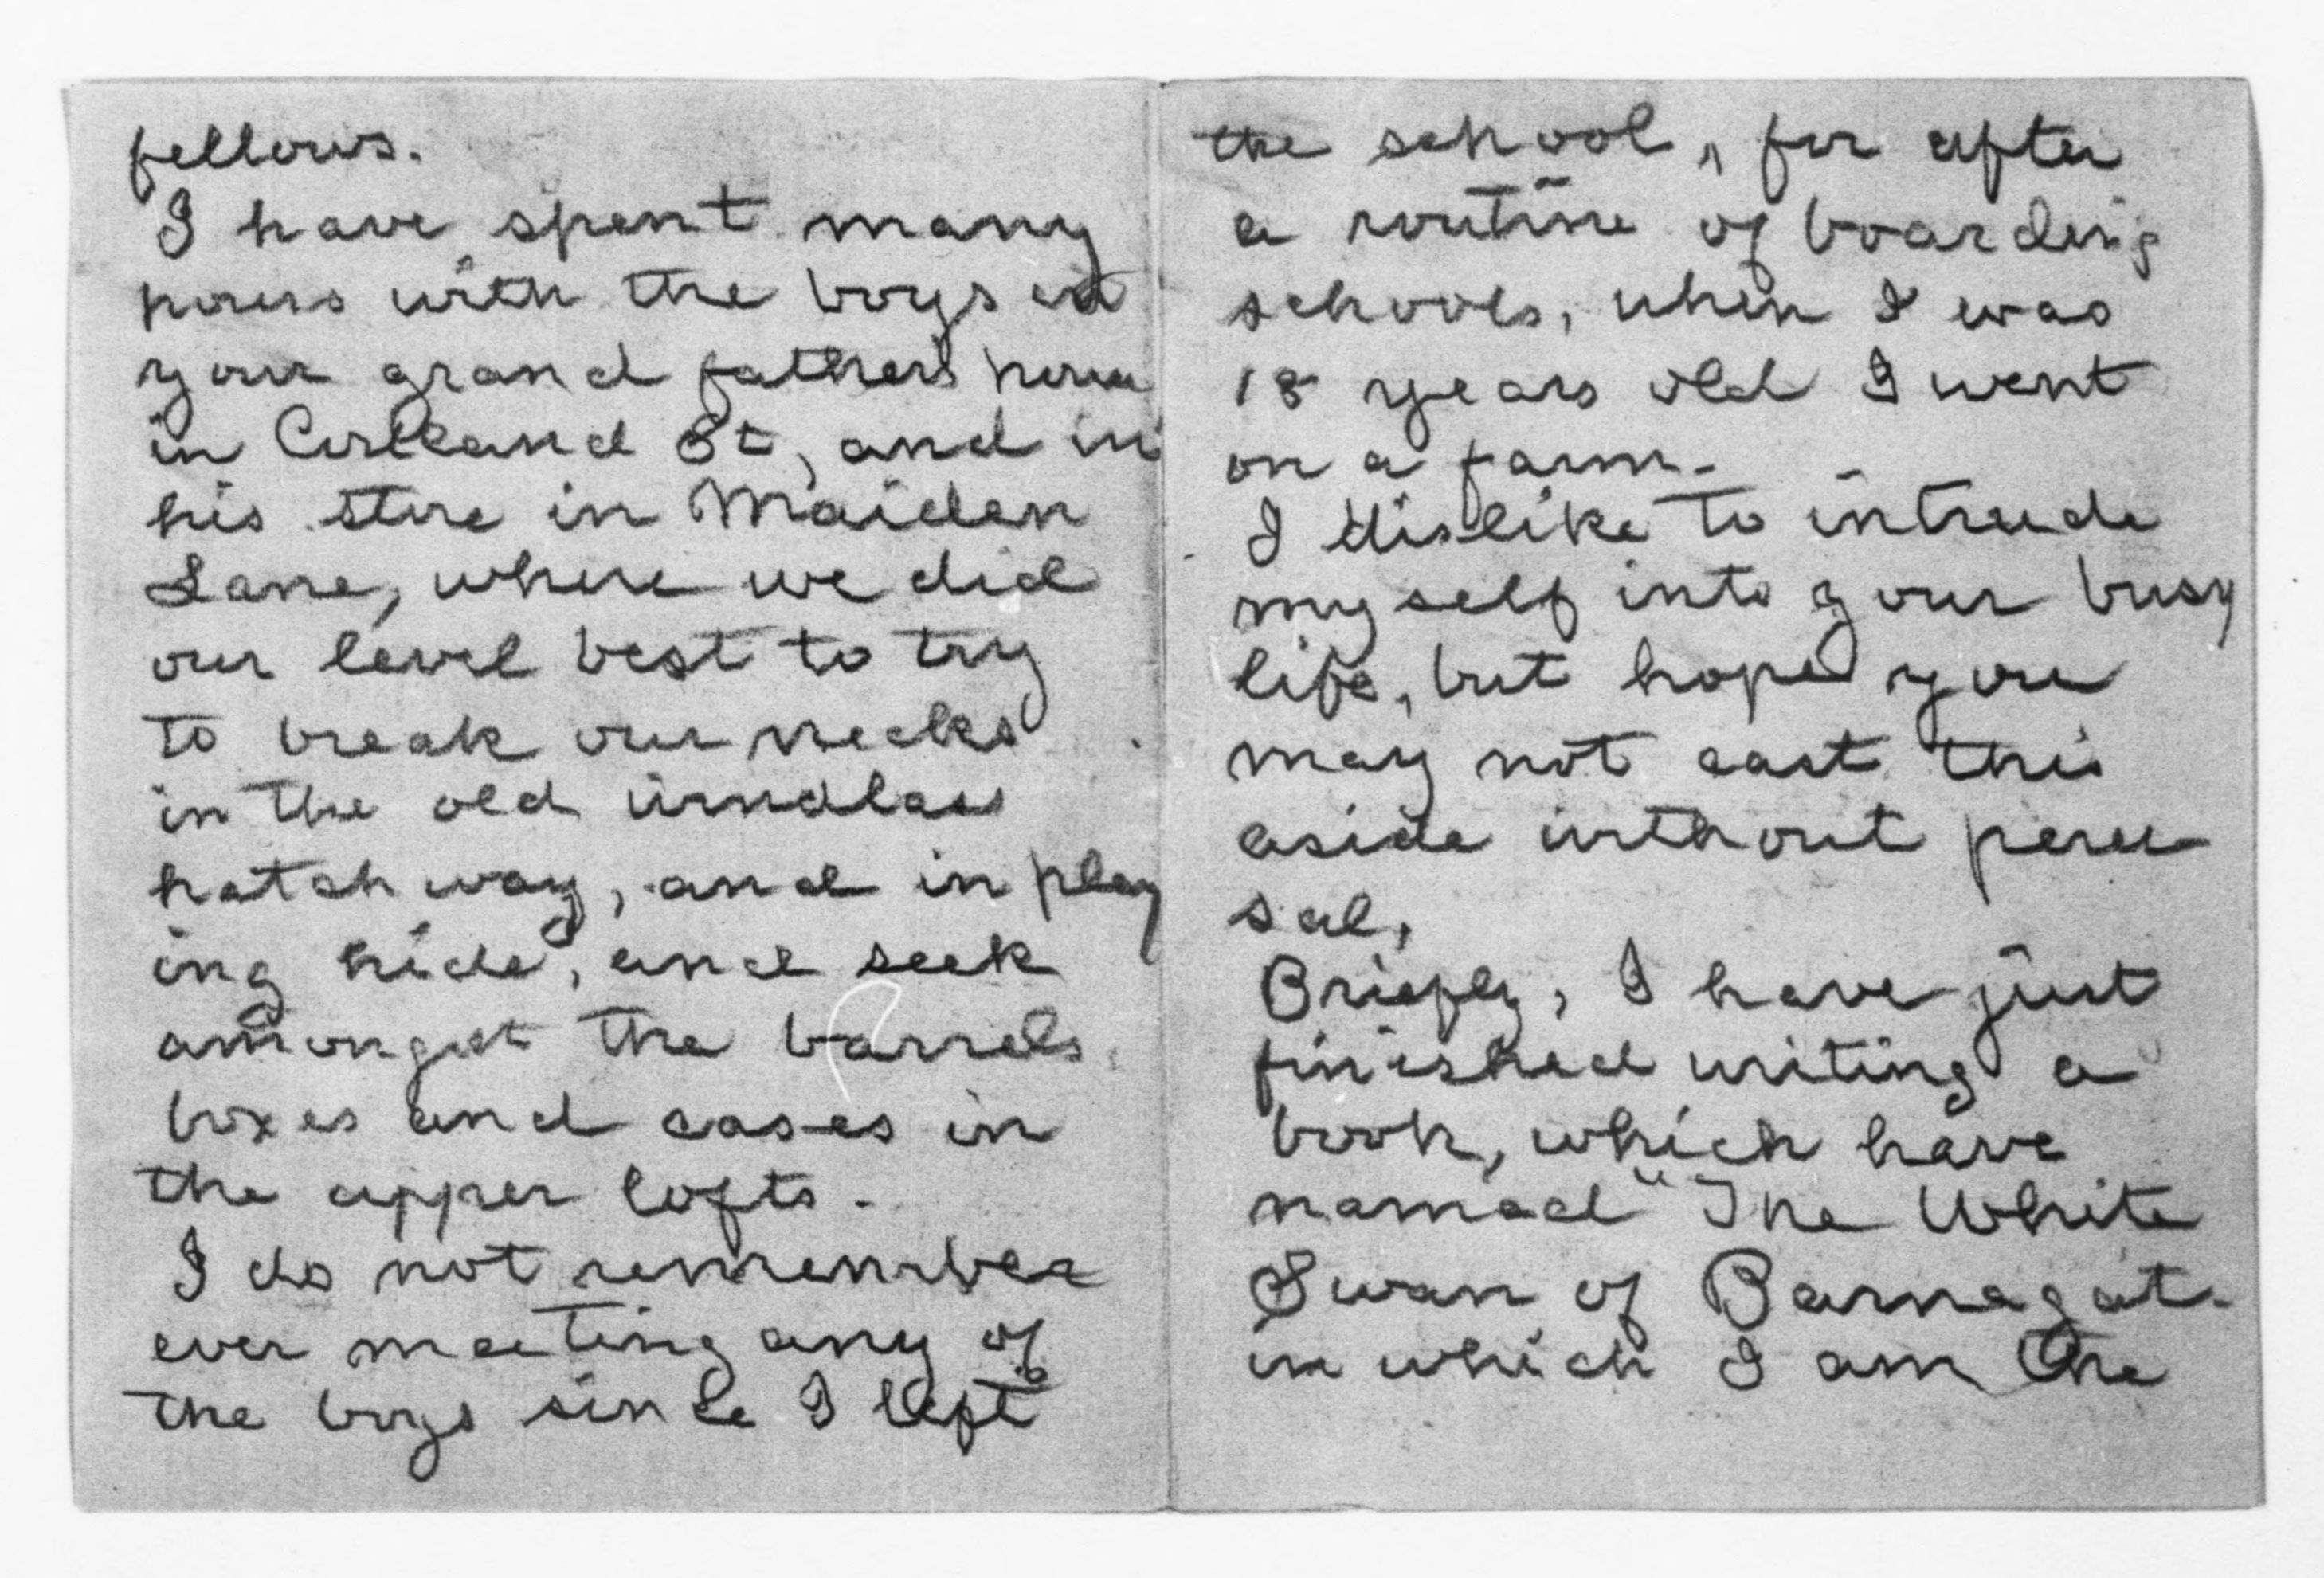 fellows.
I have spent many
hours with the boys in
your grand fathers house
in Cortland St, and in
his store in Maiden
Lane, where we did
our level best to try
to break our necks
in the old windlass
hatch way, and in play
ing hide, and seek
amongst the barrels
boxes and cases in
the upper lofts.
I do not remember
ever meeting any of
the boys since I left
the school, for after
a routine of boarding
schools, when I was
18 years old I went
on a farm.
I dislike to intrude
myself into your busy
life, but hope you
may not cast this
aside without peru
sal,
Briefly, I have just
finished writing a
book, which have
named "The White
Swan of Barnegat.
in which I am the